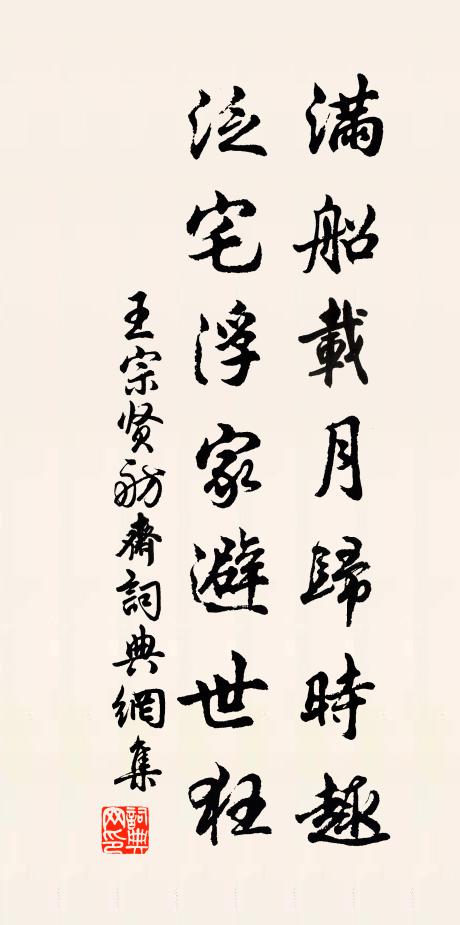 滿船載月歸時趣
泛宅浮家避世狂
王宗贤舫齋詞典網集
詞典網印